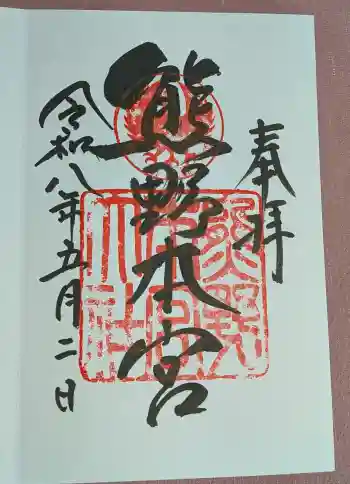 奉拝
熊野本宮
熊野本宮大社
令和八年五月二日